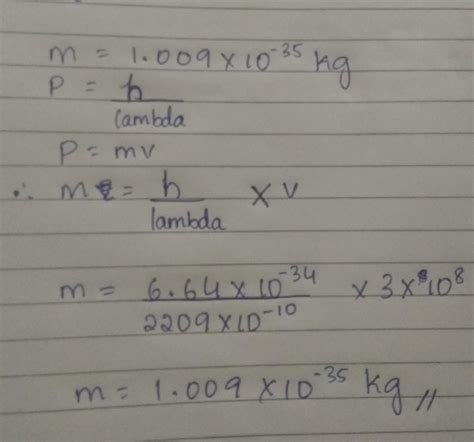 m = 1.009 x 10^-35 kg
P = h / lambda
P = mv
∴ m = h / lambda x v
m = 6.64 x 10^-34 / 2209 x 10^-10 x 3 x 10^8
m = 1.009 x 10^-35 kg //